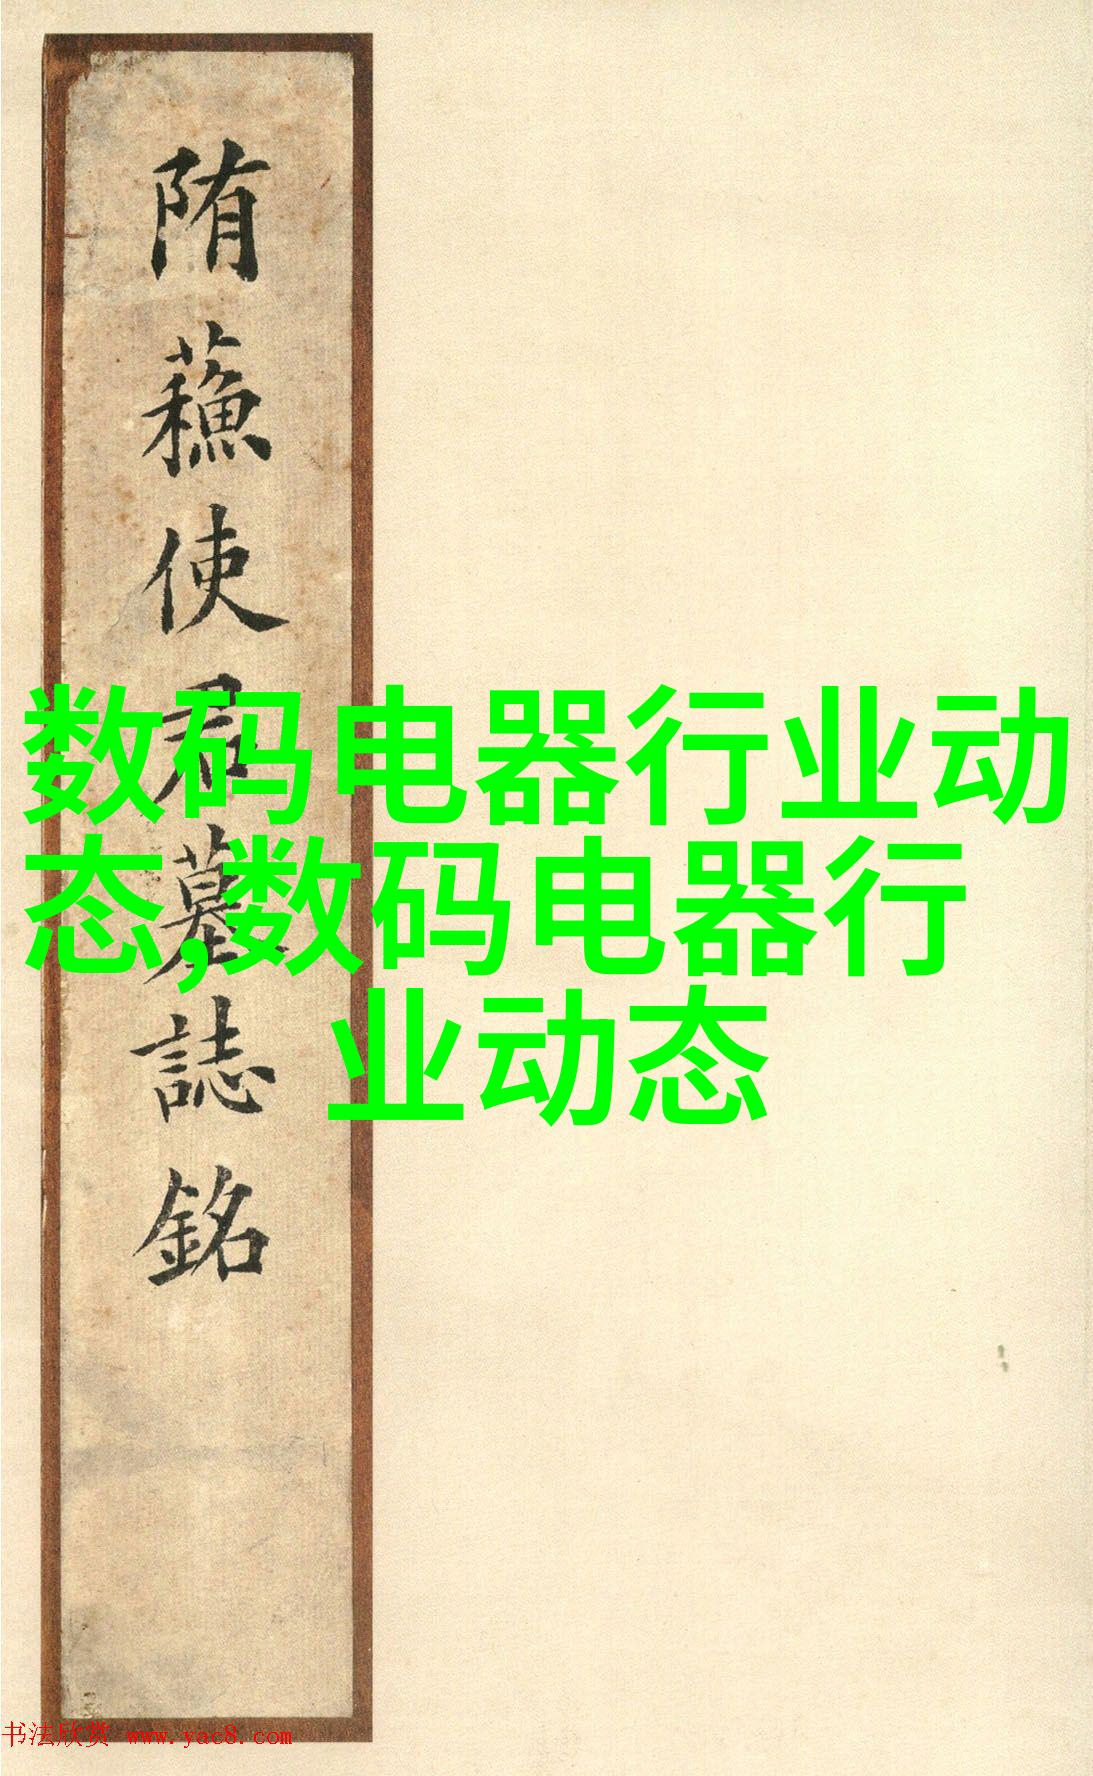 隋蘓使君墓誌銘
数码电器行业动
态,数码电器行
业动态
书法欣赏 www.yac8.com